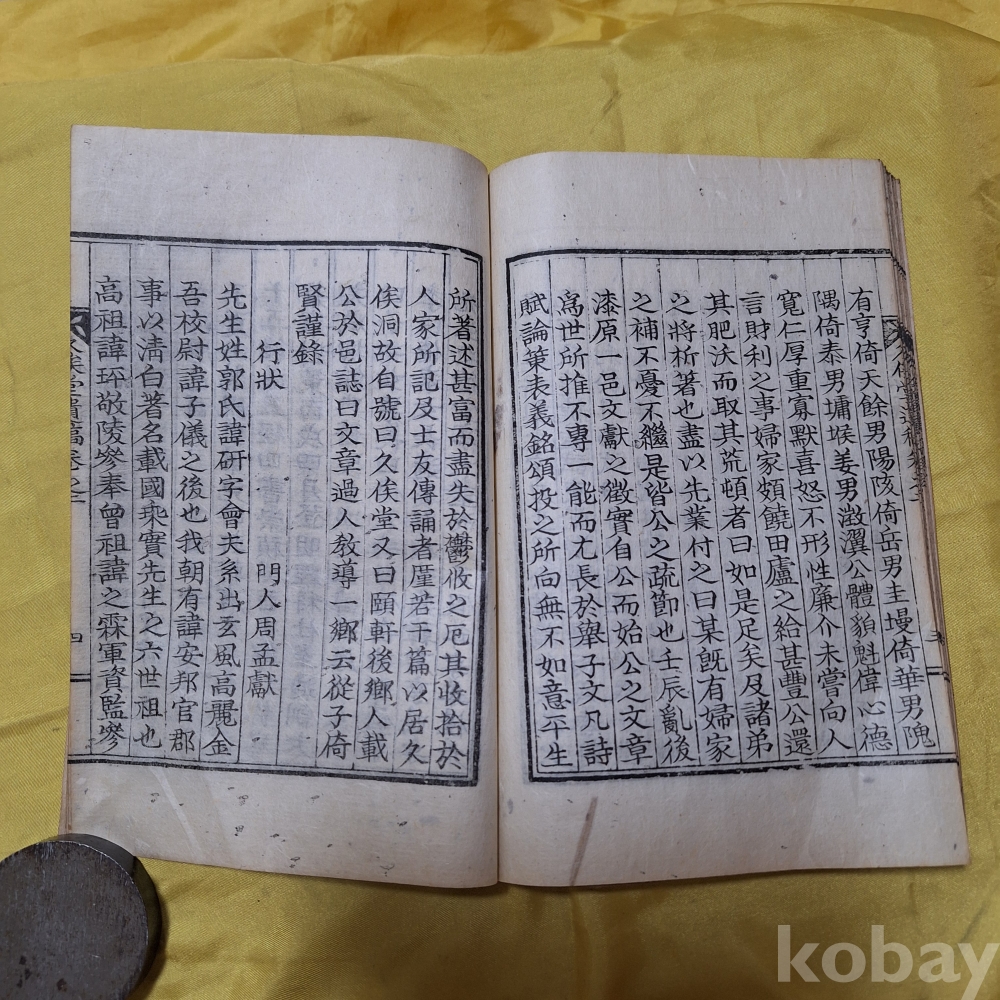 有亨倚天餘男陽陔倚岳男圭墁倚華男隗
隅倚泰男墉堠姜男澂瀷公體貌魁偉心德
寬仁厚重寡默喜怒不形性廉介未嘗向人
言財利之事婦家頗饒田廬之給甚豐公還
其肥沃而取其荒頓者曰如是足矣及諸弟
之將析著也盡以先業付之曰某旣有婦家
之補不憂不繼是皆公之疏節也壬辰亂後
漆原一邑文獻之徵實自公而始公之文章
爲世所推不專一能而尤長於舉子文凡詩
賦論策表義銘頌投之所向無不如意平生
所著述甚富而盡失於鬱攸之厄其收拾於
人家所記及士友傳誦者厪若干篇以居久
俟洞故自號曰久俟堂又曰頤軒後鄕人載
公於邑誌曰文章過人敎導一鄕云從子倚
賢謹錄
行狀 門人周孟獻
先生姓郭氏諱硏字會夫系出玄風高麗金
吾校尉諱子儀之後也我朝有諱安邦官郡
事以淸白著名載國乘實先生之六世祖也
高祖諱坪敬陵參奉曾祖諱之霖軍資監參
久俟堂實稿卷之二
四
kobay